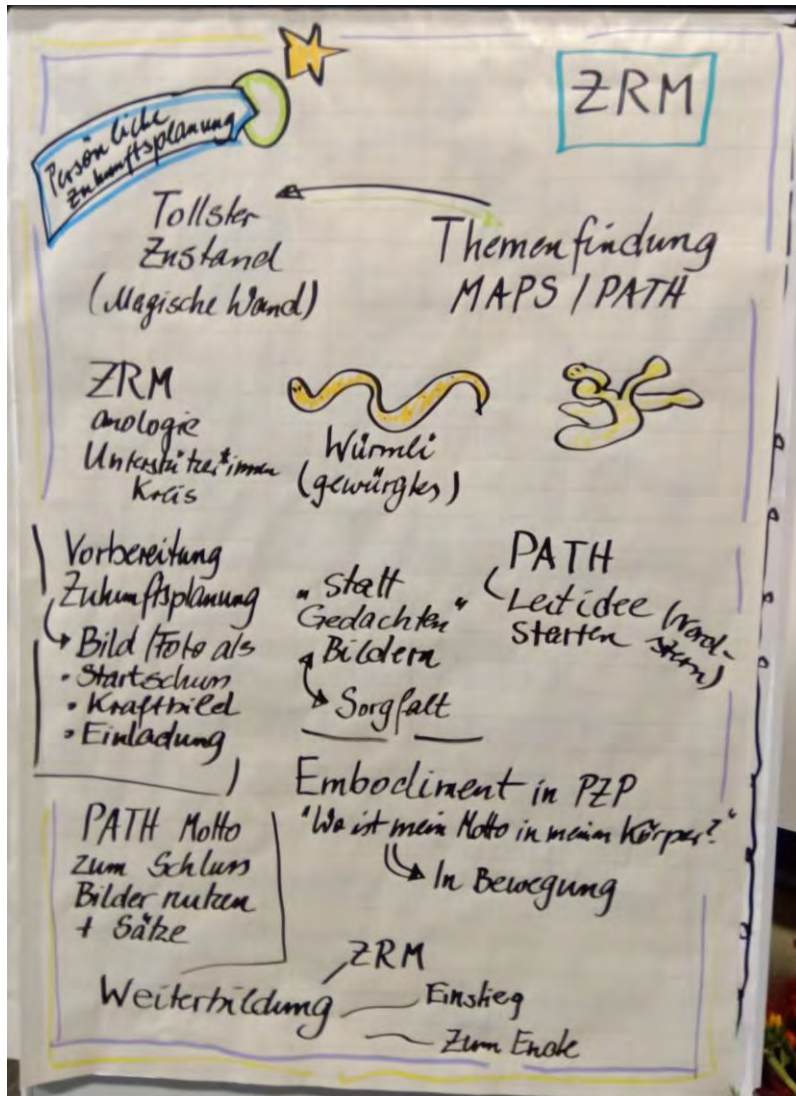 Persönliche
Zukunftsplanung
ZRM
Tollster
Zustand
(Magische Wand)
Themenfindung
MAPS / PATH
ZRM
analogie
Unterstützer*innen
Kreis
Würmli
(gewürgtes)
Vorbereitung
Zukunftsplanung
Bild / Foto als
• Startschuss
• Kraftbild
• Einladung
"Statt
Gedachten"
Bildern
Sorgfalt
PATH
Leitidee (Nord-
starten stern)
Embodiment in PZP
"Wo ist mein Motto in meinem Körper?"
In Bewegung
PATH Motto
zum Schluss
Bilder nutzen
+ Sätze
Weiterbildung
ZRM
Einstieg
Zum Ende